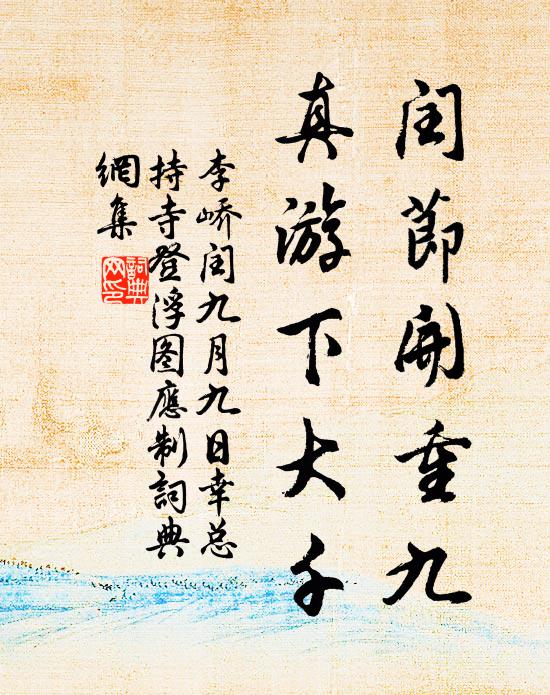 闰節開重九
真游下大千
李峤闰九月九日幸总
持寺登浮图應制詞典
網集
詞典
网印